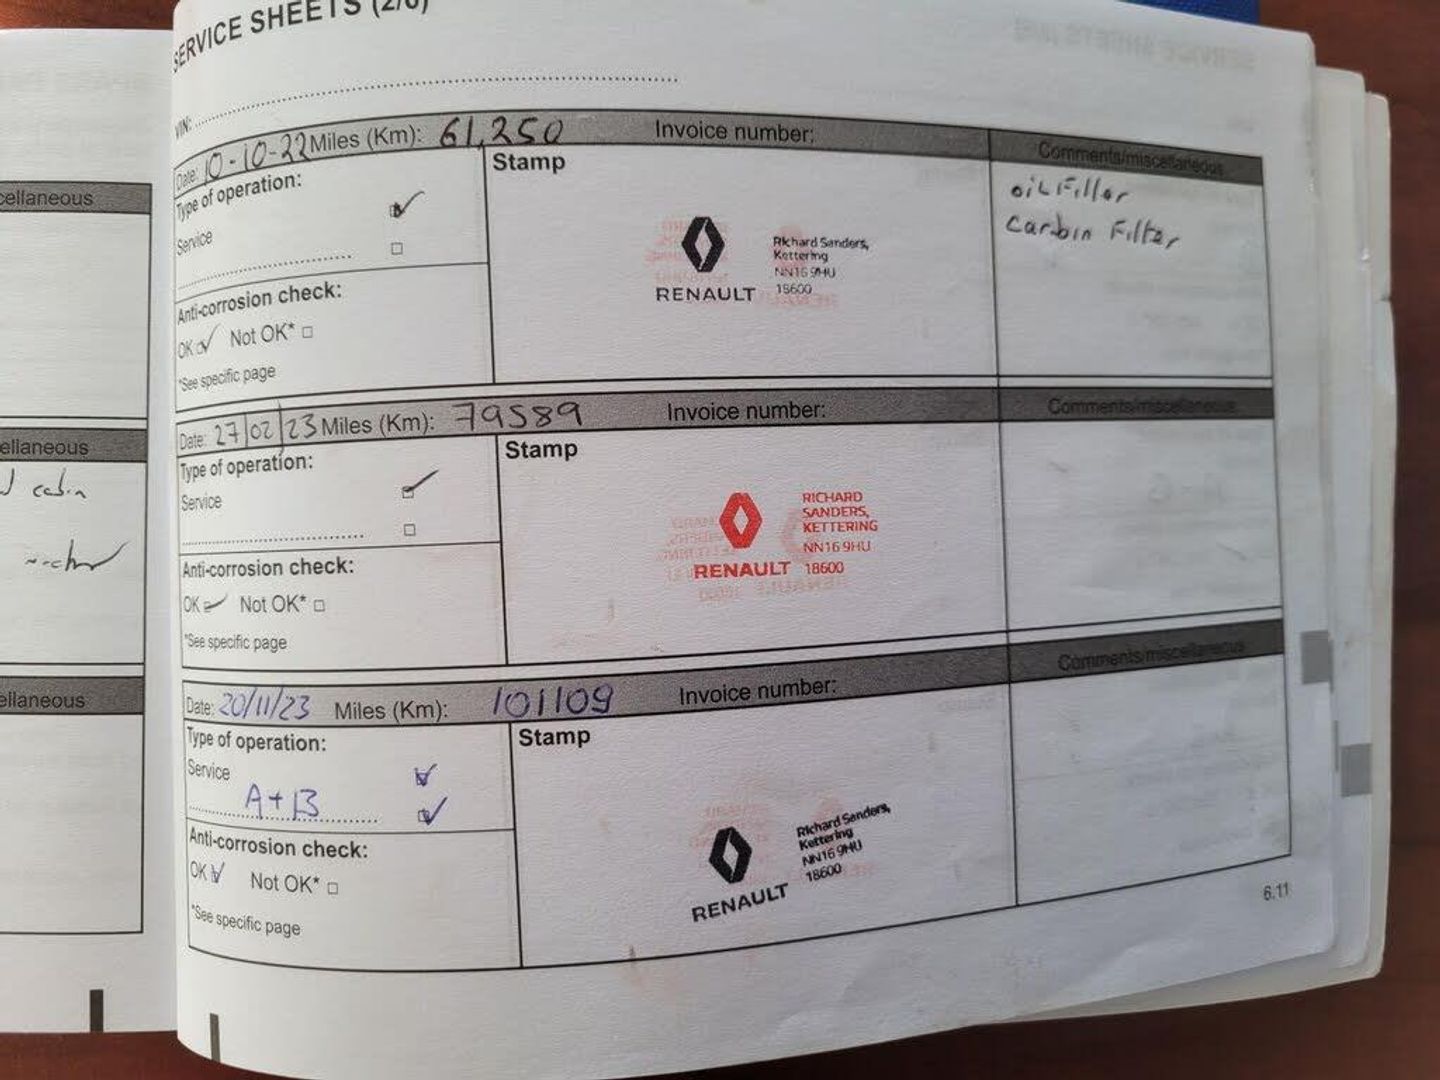 SERVICE SHEETS (2/6)
VIN:
Date: 10-10-22 Miles (Km): 61,250 Invoice number:
Comments/miscellaneous
Type of operation:
Service
Anti-corrosion check:
OK Not OK*
*See specific page
Stamp
RENAULT
Richard Sanders,
Kettering
NN16 9HU
18600
oil Filter
carbin Filter
Date: 27/02/23 Miles (Km): 79589 Invoice number:
Comments/miscellaneous
Type of operation:
Service
Anti-corrosion check:
OK Not OK*
*See specific page
Stamp
RENAULT
RICHARD
SANDERS,
KETTERING
NN16 9HU
18600
Date: 20/11/23 Miles (Km): 101109 Invoice number:
Comments/miscellaneous
Type of operation:
Service
A+B
Anti-corrosion check:
OK Not OK*
*See specific page
Stamp
RENAULT
Richard Sanders,
Kettering
NN16 9HU
18600
6.11
cellaneous
ellaneous
ellaneous